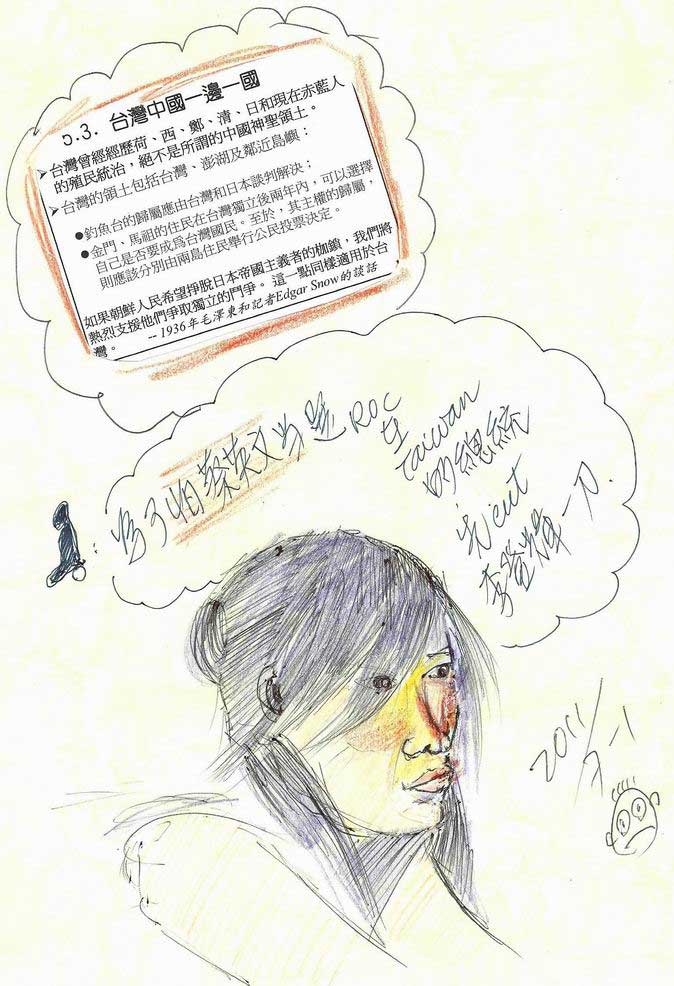 5.3. 台灣中國一邊一國
➢台灣曾經經歷荷、西、鄭、清、日和現在赤藍人
的殖民統治，絕不是所謂的中國神聖領土。
➢台灣的領土包括台灣、澎湖及鄰近島嶼：
●釣魚台的歸屬應由台灣和日本談判解決；
●金門、馬祖的住民在台灣獨立後兩年內，可以選擇
自己是否要成爲台灣國民。至於，其主權的歸屬，
則應該分別由兩島住民舉行公民投票決定。
如果朝鮮人民希望掙脫日本帝國主義者的枷鎖，我們將
熱烈支援他們爭取獨立的鬥爭。這一點同樣適用於台
灣。
-- 1936年毛澤東和記者Edgar Snow的談話
為了怕蔡英文当選 ROC
在
Taiwan
的總統
先cut
李登輝一刀.
2011/
7-1